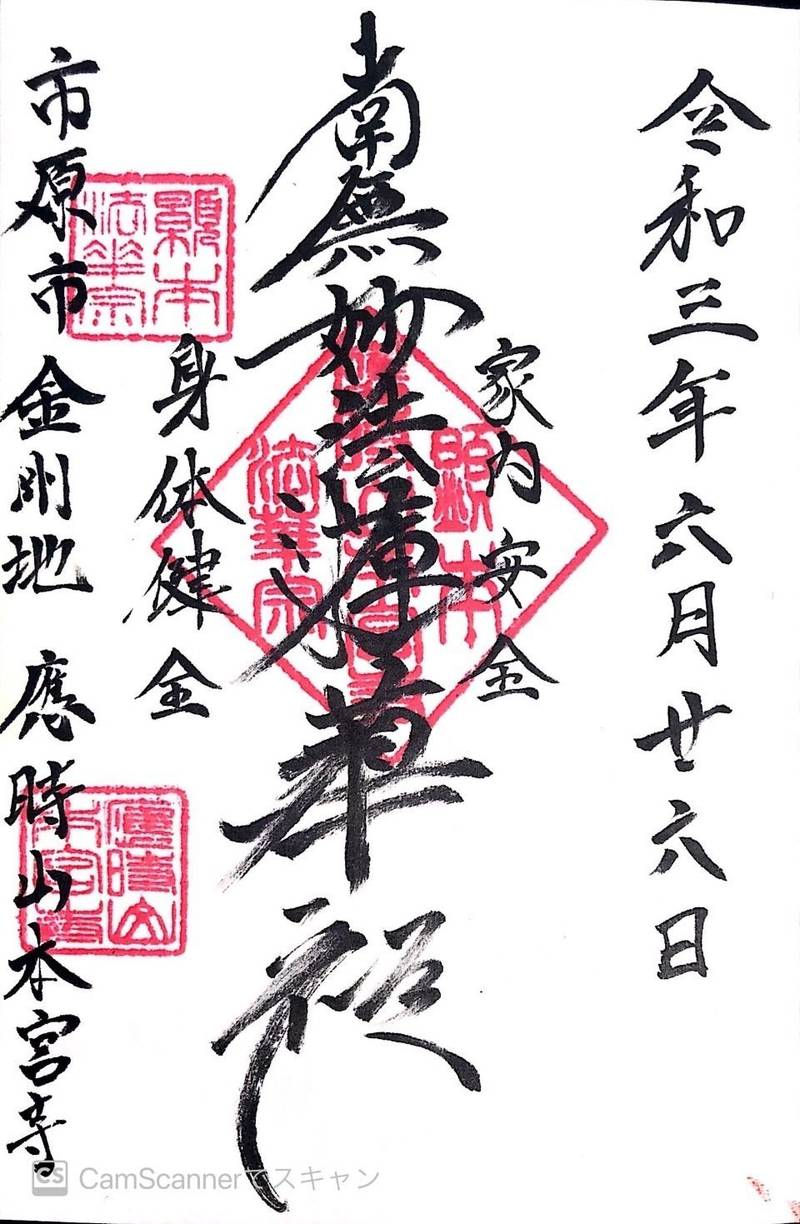 令和三年六月廿六日
家内安全
南無妙法蓮華経
身体健全
市原市金剛地 應時山本宮寺
顕本
法華宗
顕本
法華宗
應時山
本宮寺
CamScannerでスキャン